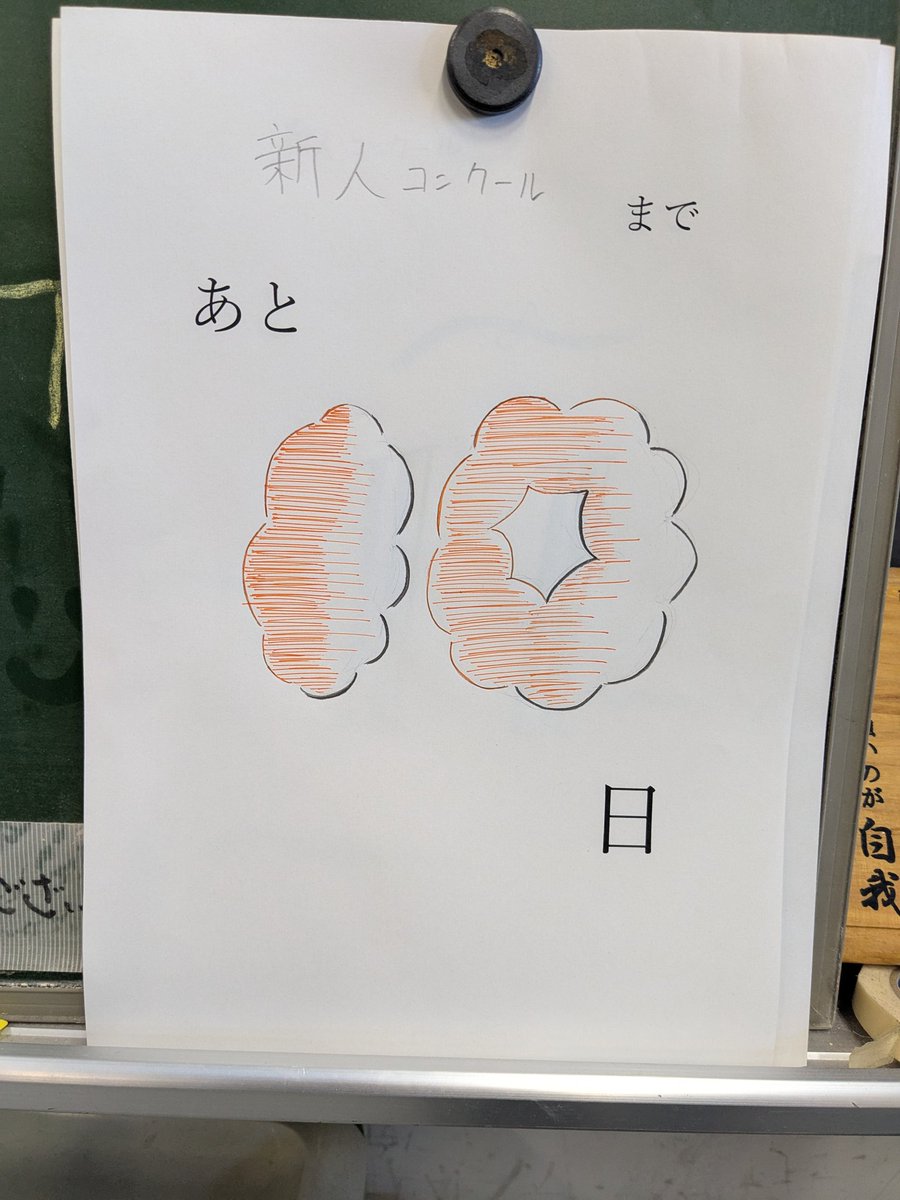 新人コンクール
まで
あと
10
日
のが
自我